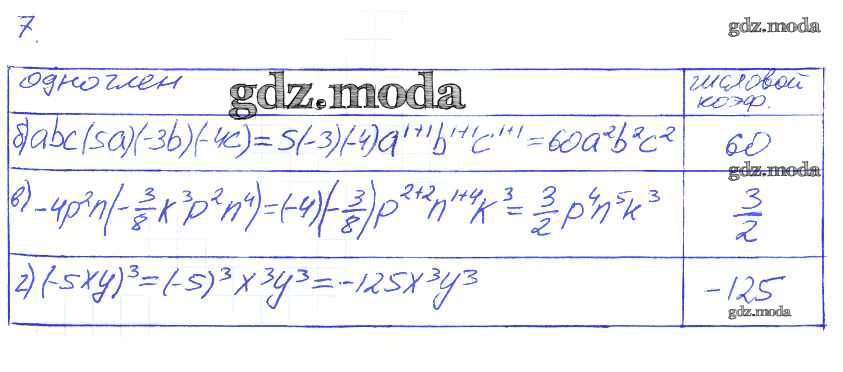 7.
gdz.moda
одночлен
gdz.moda
числовой
коэф.
б) abc(5a)(-3b)(-4c)=5(-3)(-4)a¹⁺¹b¹⁺¹c¹⁺¹=60a²b²c²
60
gdz.moda
в) -4p²n(-3/8k³p²n⁴)=(-4)(-3/8)p²⁺²n¹⁺⁴k³=3/2p⁴n⁵k³
3/2
г) (-5xy)³=(-5)³x³y³=-125x³y³
-125
gdz.moda